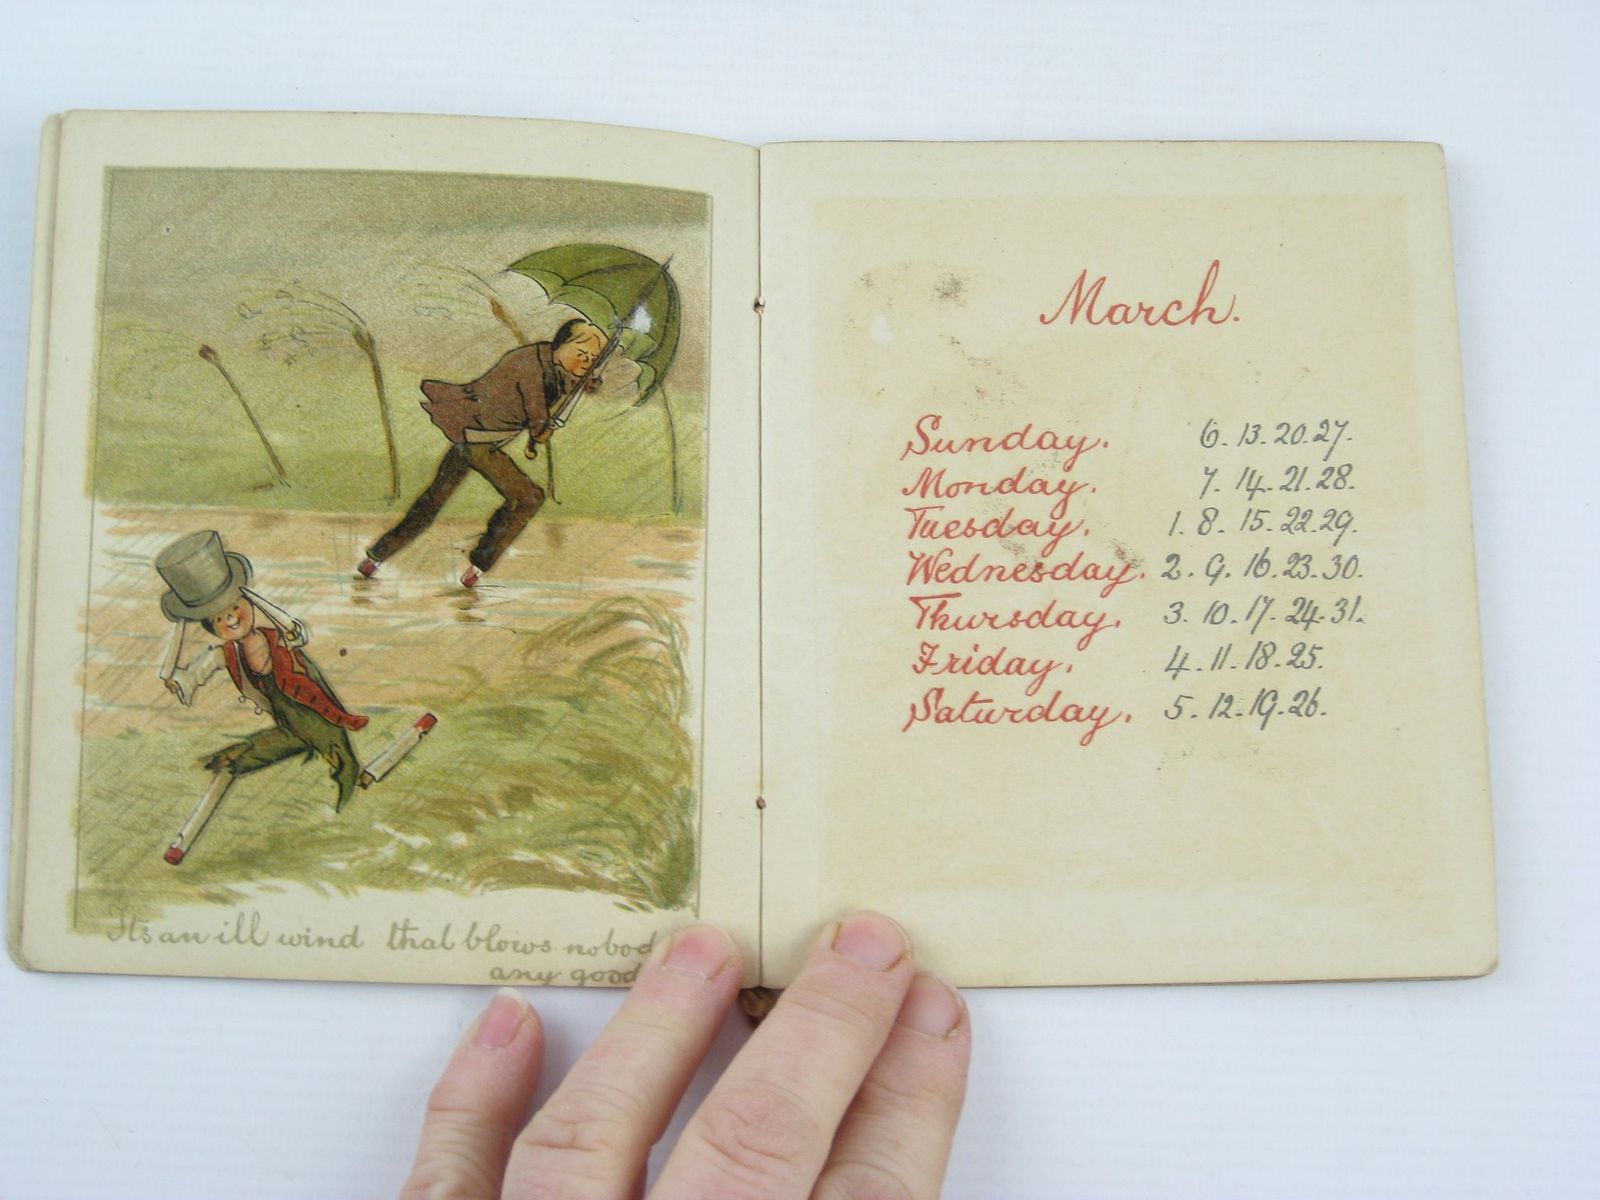 Its an ill wind that blows nobod
any good
March.
Sunday. 6. 13. 20. 27.
Monday. 7. 14. 21. 28.
Tuesday. 1. 8. 15. 22. 29.
Wednesday. 2. 9. 16. 23. 30.
Thursday. 3. 10. 17. 24. 31.
Friday. 4. 11. 18. 25.
Saturday. 5. 12. 19. 26.